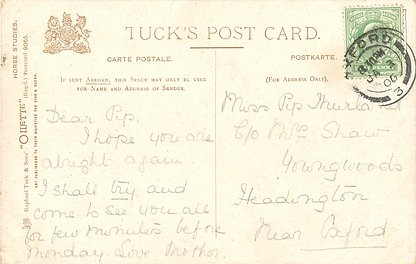 TUCK'S POST CARD.
CARTE POSTALE.
POSTKARTE.
IF SENT ABROAD, THIS SPACE MAY ONLY BE USED
FOR NAME AND ADDRESS OF SENDER.
(FOR ADDRESS ONLY).
HORSE STUDIES.
Raphael Tuck & Sons' "OILETTE" (Regd.) Postcard 9065.
ART PUBLISHERS TO THEIR MAJESTIES THE KING & QUEEN.
Dear Pip.
I hope you are
alright again.
I shall try and
come to see you all
for few minutes before
Monday. Love. Mother.
Miss Pip
C/o Mrs Shaw
Youngwoods
Headington
Near Oxford
OXFORD
06
3